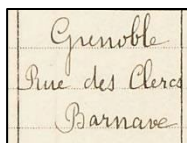 Grenoble
Rue des Clercs
Barnave